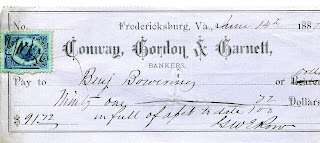 No. Fredericksburg, Va., June 14th 188
Conway, Gordon & Garnett,
BANKERS,
Pay to Benj Bowering or order
Ninety one 72/100 Dollars
$91.72 in full of acct to date